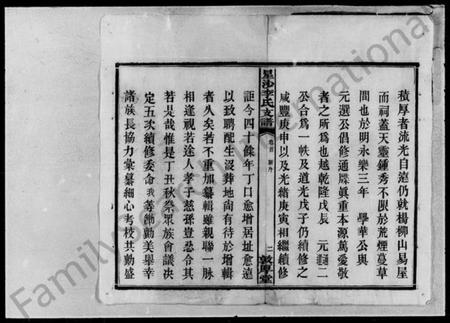 積厚者流光自邇仍就楊柳山易屋
而祠蓋天靈鍾秀不限於荒煙蔓草
間也於明永樂三年 學華公與
元選公倡修通牒眞重本源篤愛敬
者之所爲也越乾隆戊長 元魁二
公合爲一帙及道光戊子仍續修之
咸豐庚申以及光緒庚寅相繼續修
星沙李氏支譜
卷首 新序
二
敦厚堂
距今四十餘年丁口愈增居址愈遠
以致聘配生沒葬地尚有待於增輯
者久矣若不重加纂輯雖親聯一脉
相逢視若途人孝子慈孫豈忍令其
若是哉惟是丁丑秋祭眾族會議決
定五次續修委命我等勷勸美舉幸
諸族長協力彙纂細心考校共勷盛
FamilySearch International